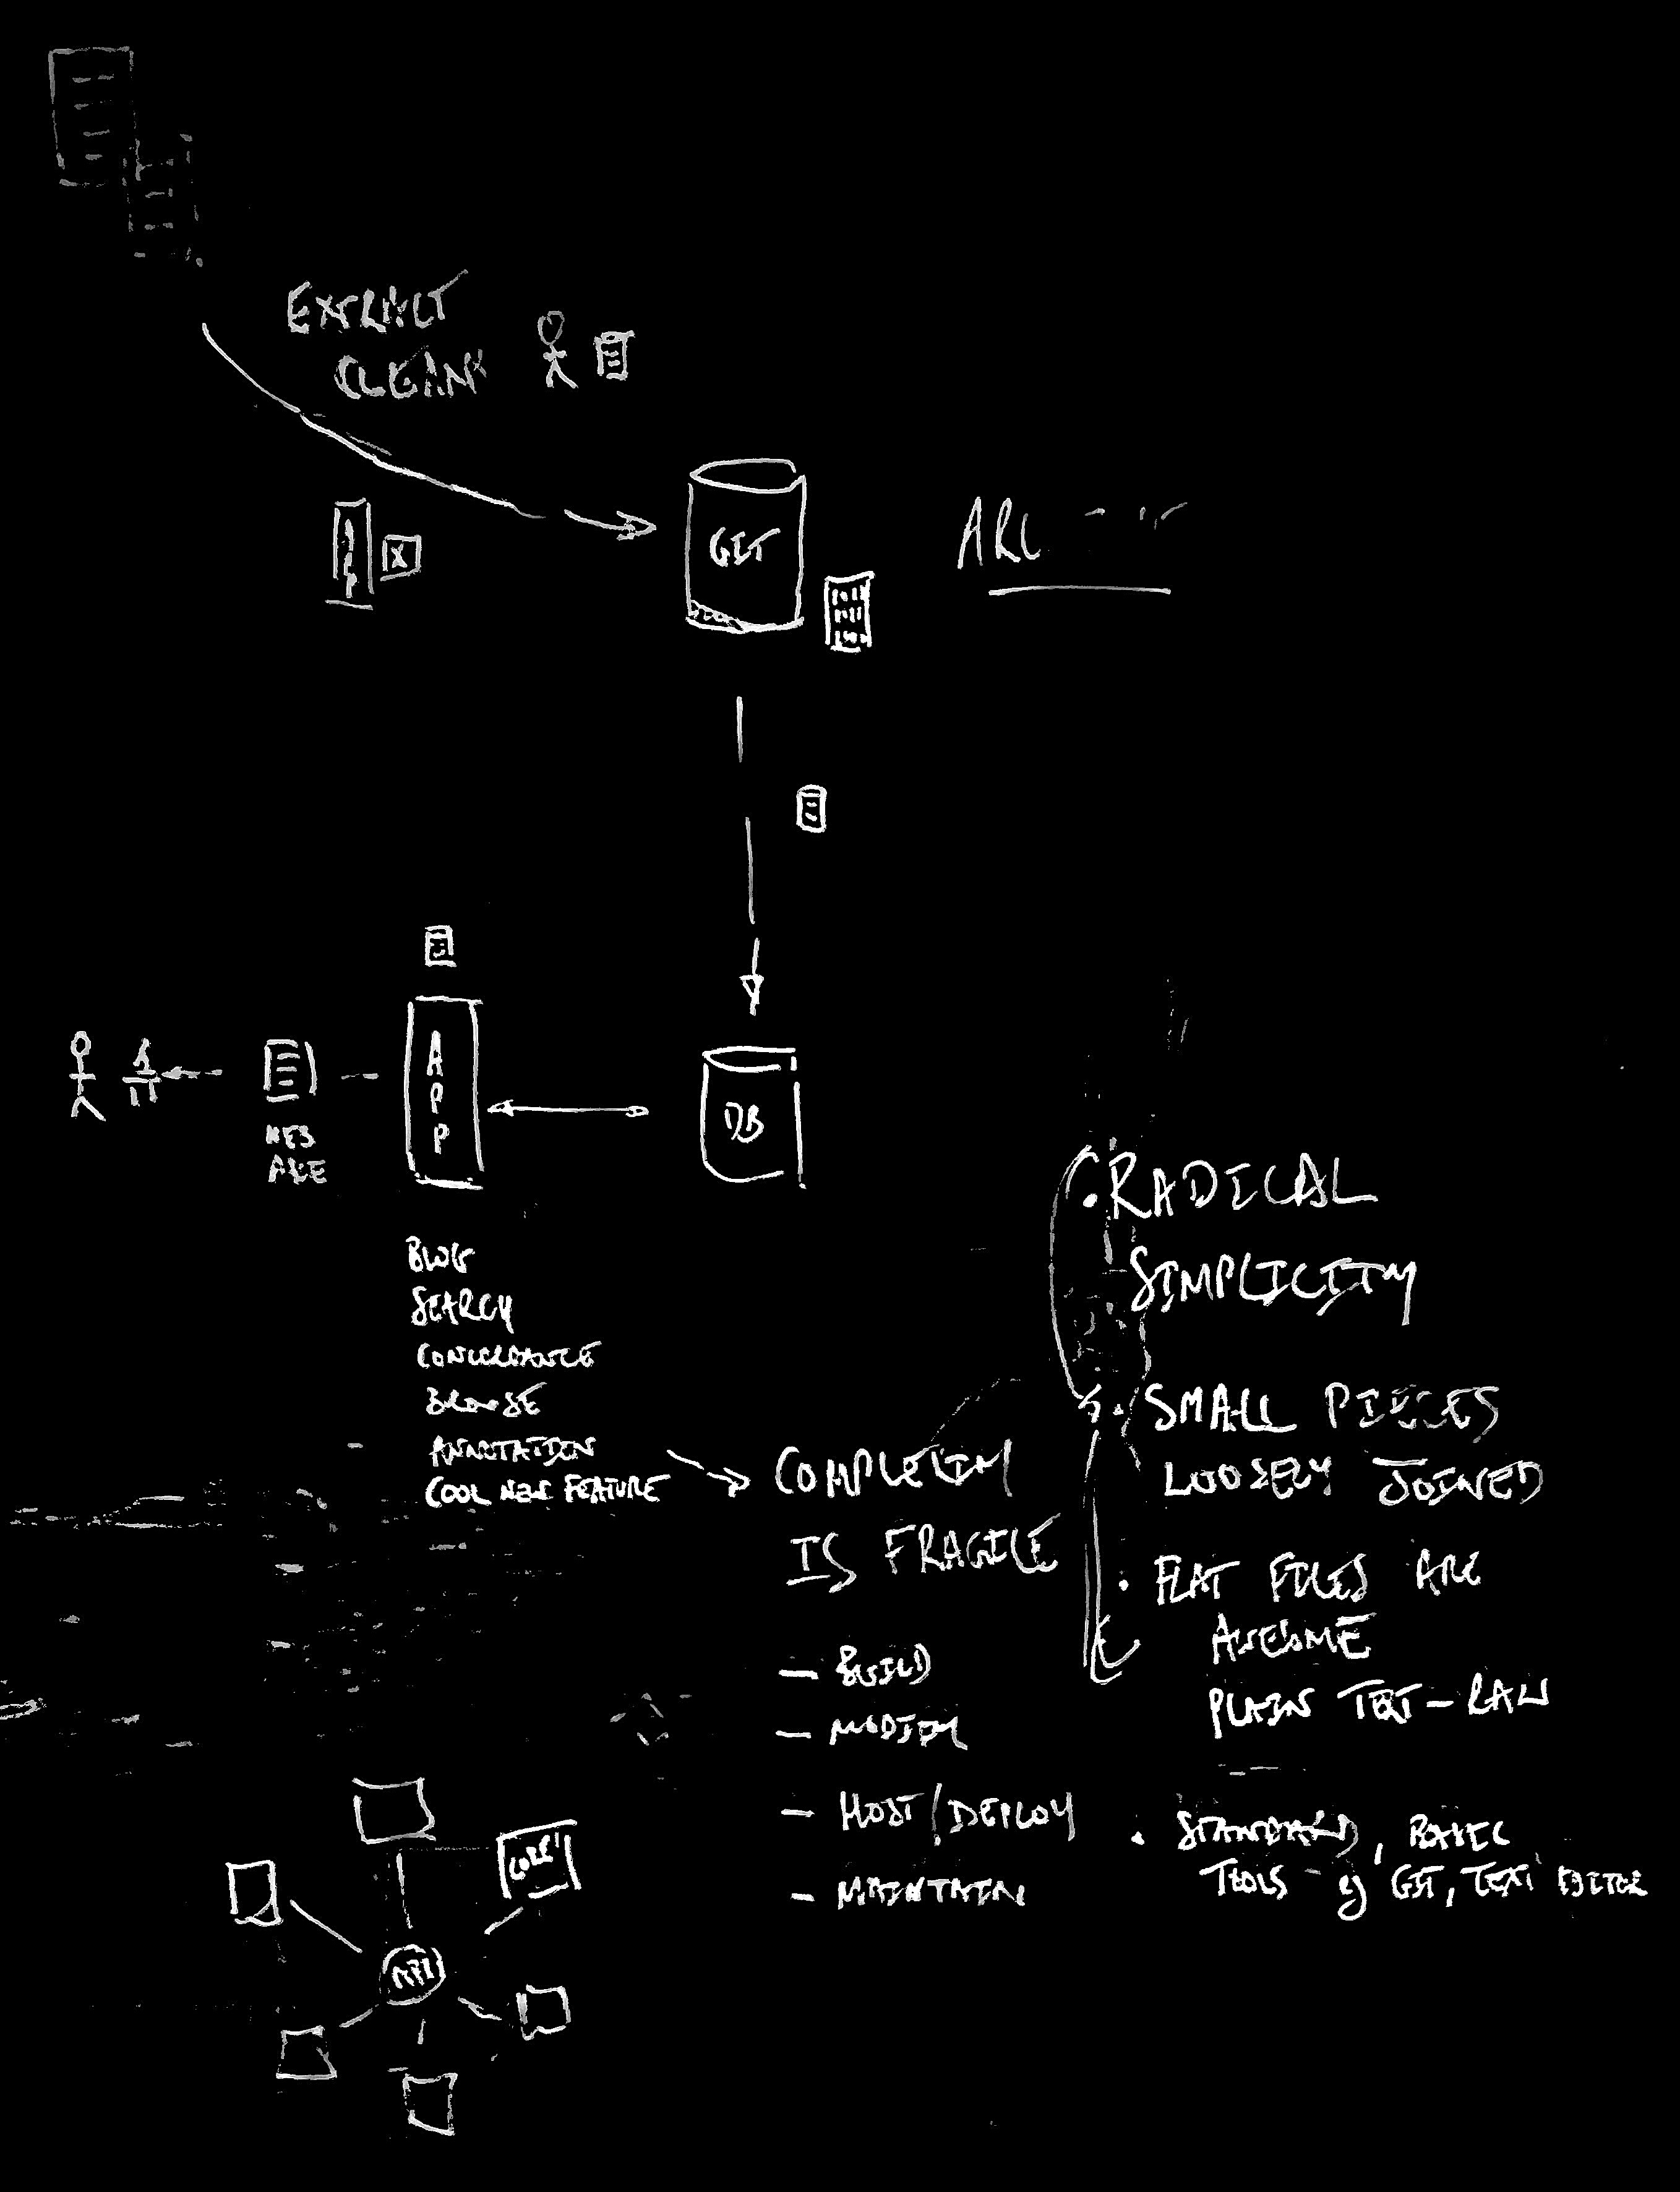 EXTRACT
CLEAN
GIT
APP
X
DB
APP
WEB
BLOG
SEARCH
CONCORDANCE
BROWSE
ANNOTATION
COOL NEW FEATURE
COMPLEXITY
IS FRAGILE
- BUILD
- MODIFY
- HOST/DEPLOY
- MAINTAIN
• RADICAL
SIMPLICITY
• SMALL PIECES
LOOSELY JOINED
• FLAT FILES ARE
AWESOME
PLAIN TEXT - RAW
• STANDARD, BASIC
TOOLS - eg GIT, TEXT EDITOR
"CORE"
API